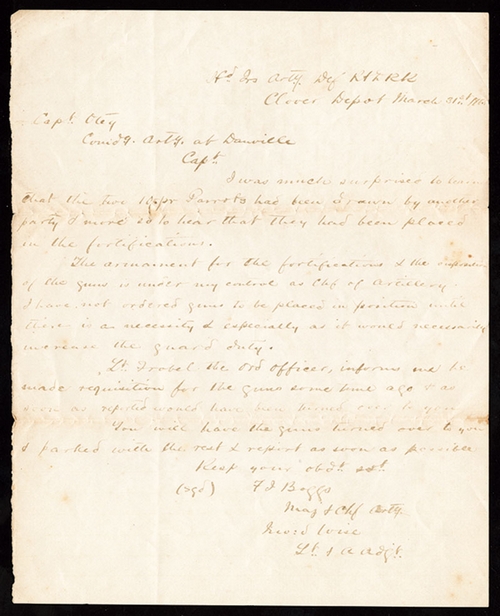 Hd Qrs Arty Def R & D R R
Clover Depot March 31st
Capt. Otey
Comdg. Arty. at Danville
Capt
I was much surprised to learn
that the two 10 pr Parrots had been drawn by another
party & more so to hear that they had been placed
in the fortifications.
The armament for the fortifications & the
of the guns is under my control as Chf of Artillery.
I have not ordered guns to be placed in position until
there is a necessity & especially as it would necessarily
increase the guard duty.
Lt. Frobel the Ord officer, informs me he
made requisition for the guns some time ago & as
soon as reported would have been turned over to you
You will have the guns turned over to you
& parked with the rest & report as soon as possible
Resp your obdt svt.
(sgd) F J Boggs
Maj & Chf Arty.
Wise
Lt. & A Adjt.